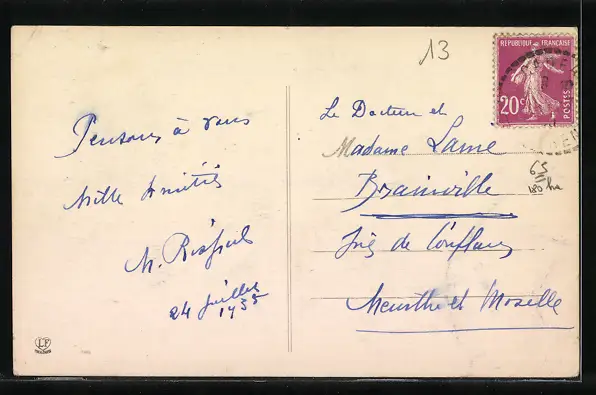 13
RÉPUBLIQUE FRANÇAISE
20c
POSTES
Pensons à vous
Mille Amitiés
M.
24 Juillet
1935
Le Docteur et
Madame Lame
Brainville
près de Conflans
Meurthe et Moselle
65
180 ha
LF